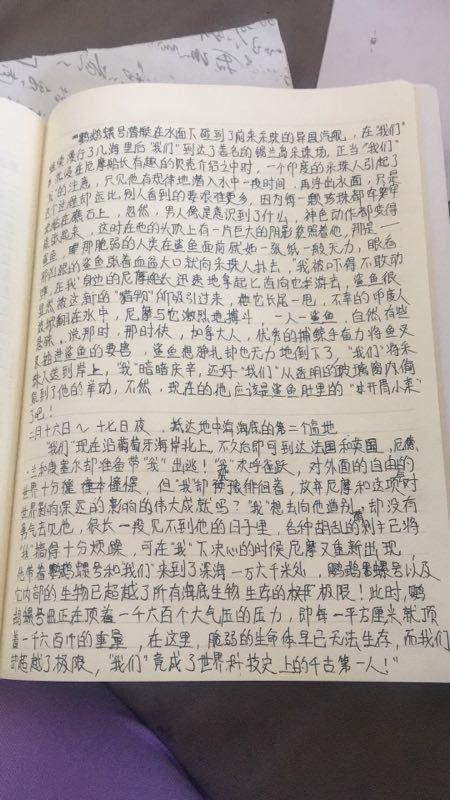 "鹦鹉螺号潜艇在水面下碰到了前来采珠的异国汽舰,在"我们"
继续漫行了几海里后"我们"到达了著名的锡兰岛采珠场,正当"我们"
沉浸在尼摩船长有趣的贝壳介绍之时,一个印度的采珠人引起了
"我"的注意,只见他有规律地潜入水中一段时间,再浮出水面,只是
这个过程却远比别人看到的要艰难更多,因为每一颗珍珠都牢牢
地粘在礁石上,忽然,男人像是意识到了什么,神色动作都变得
紧张起来,这时在他的头顶上有一片巨大的阴影笼照着他,那是一
鲨鱼,哪那脆弱的人类在鲨鱼面前就如一张纸一般无力,眼看
那凶狠的鲨鱼张着血盆大口就向采珠人扑去,"我被吓得不敢动
弹,在"我"身边的尼摩船长迅速地拿起匕首向它手游去,鲨鱼很
显然被这新的"猎物"所吸引过来,他它长尾一甩,不幸的印度人
就被翻在水中,尼摩与它激烈地搏斗,一人一鲨鱼,自然有些
悬殊,说那时,那时快,加拿大人,优秀的捕鲸手奋力将鱼叉
叉进鲨鱼的要害,鲨鱼想挣扎却也无力地倒下了,"我们"将采
珠人送到岸上,"我"暗暗庆幸,还好"我们"从透明的玻璃窗内偷
窥到了他的举动,不然,现在的他应该是鲨鱼肚里的"开胃小菜"
了吧!
二月十六日~十七日夜,抵达地中海海底的第二个高地
"我们"现在沿葡萄牙海岸北上,不久后即可到达法国和英国,尼摩
兰和康塞尔却准备带"我"出逃!"我"欢呼雀跃,对外面的自由的
世界十分憧憬,但"我"却徘徊着,放弃尼摩和这项对
世界影响深远的影响的伟大成就吗?"我"想去向他道别,却没有
勇气去见他,很长一段见不到他的日子里,各种胡乱的别于已将
"我"搞得十分烦躁,可在"我"下决心的时候尼摩又重新出现,
他带着鹦鹉螺号和我们"来到了深海一万六千米处,鹦鹉螺号以及
它内部的生物已超越了所有海底生物生存的极限!此时,鹦
鹉螺号正在顶着一千六百个大气压的压力,即每一平方厘米就顶
着一千六百斤的重量,在这里,脆弱的生命体早已无法生存,而我们
却超越了极限,"我们"竟成了世界科技史上的千古第一人!"